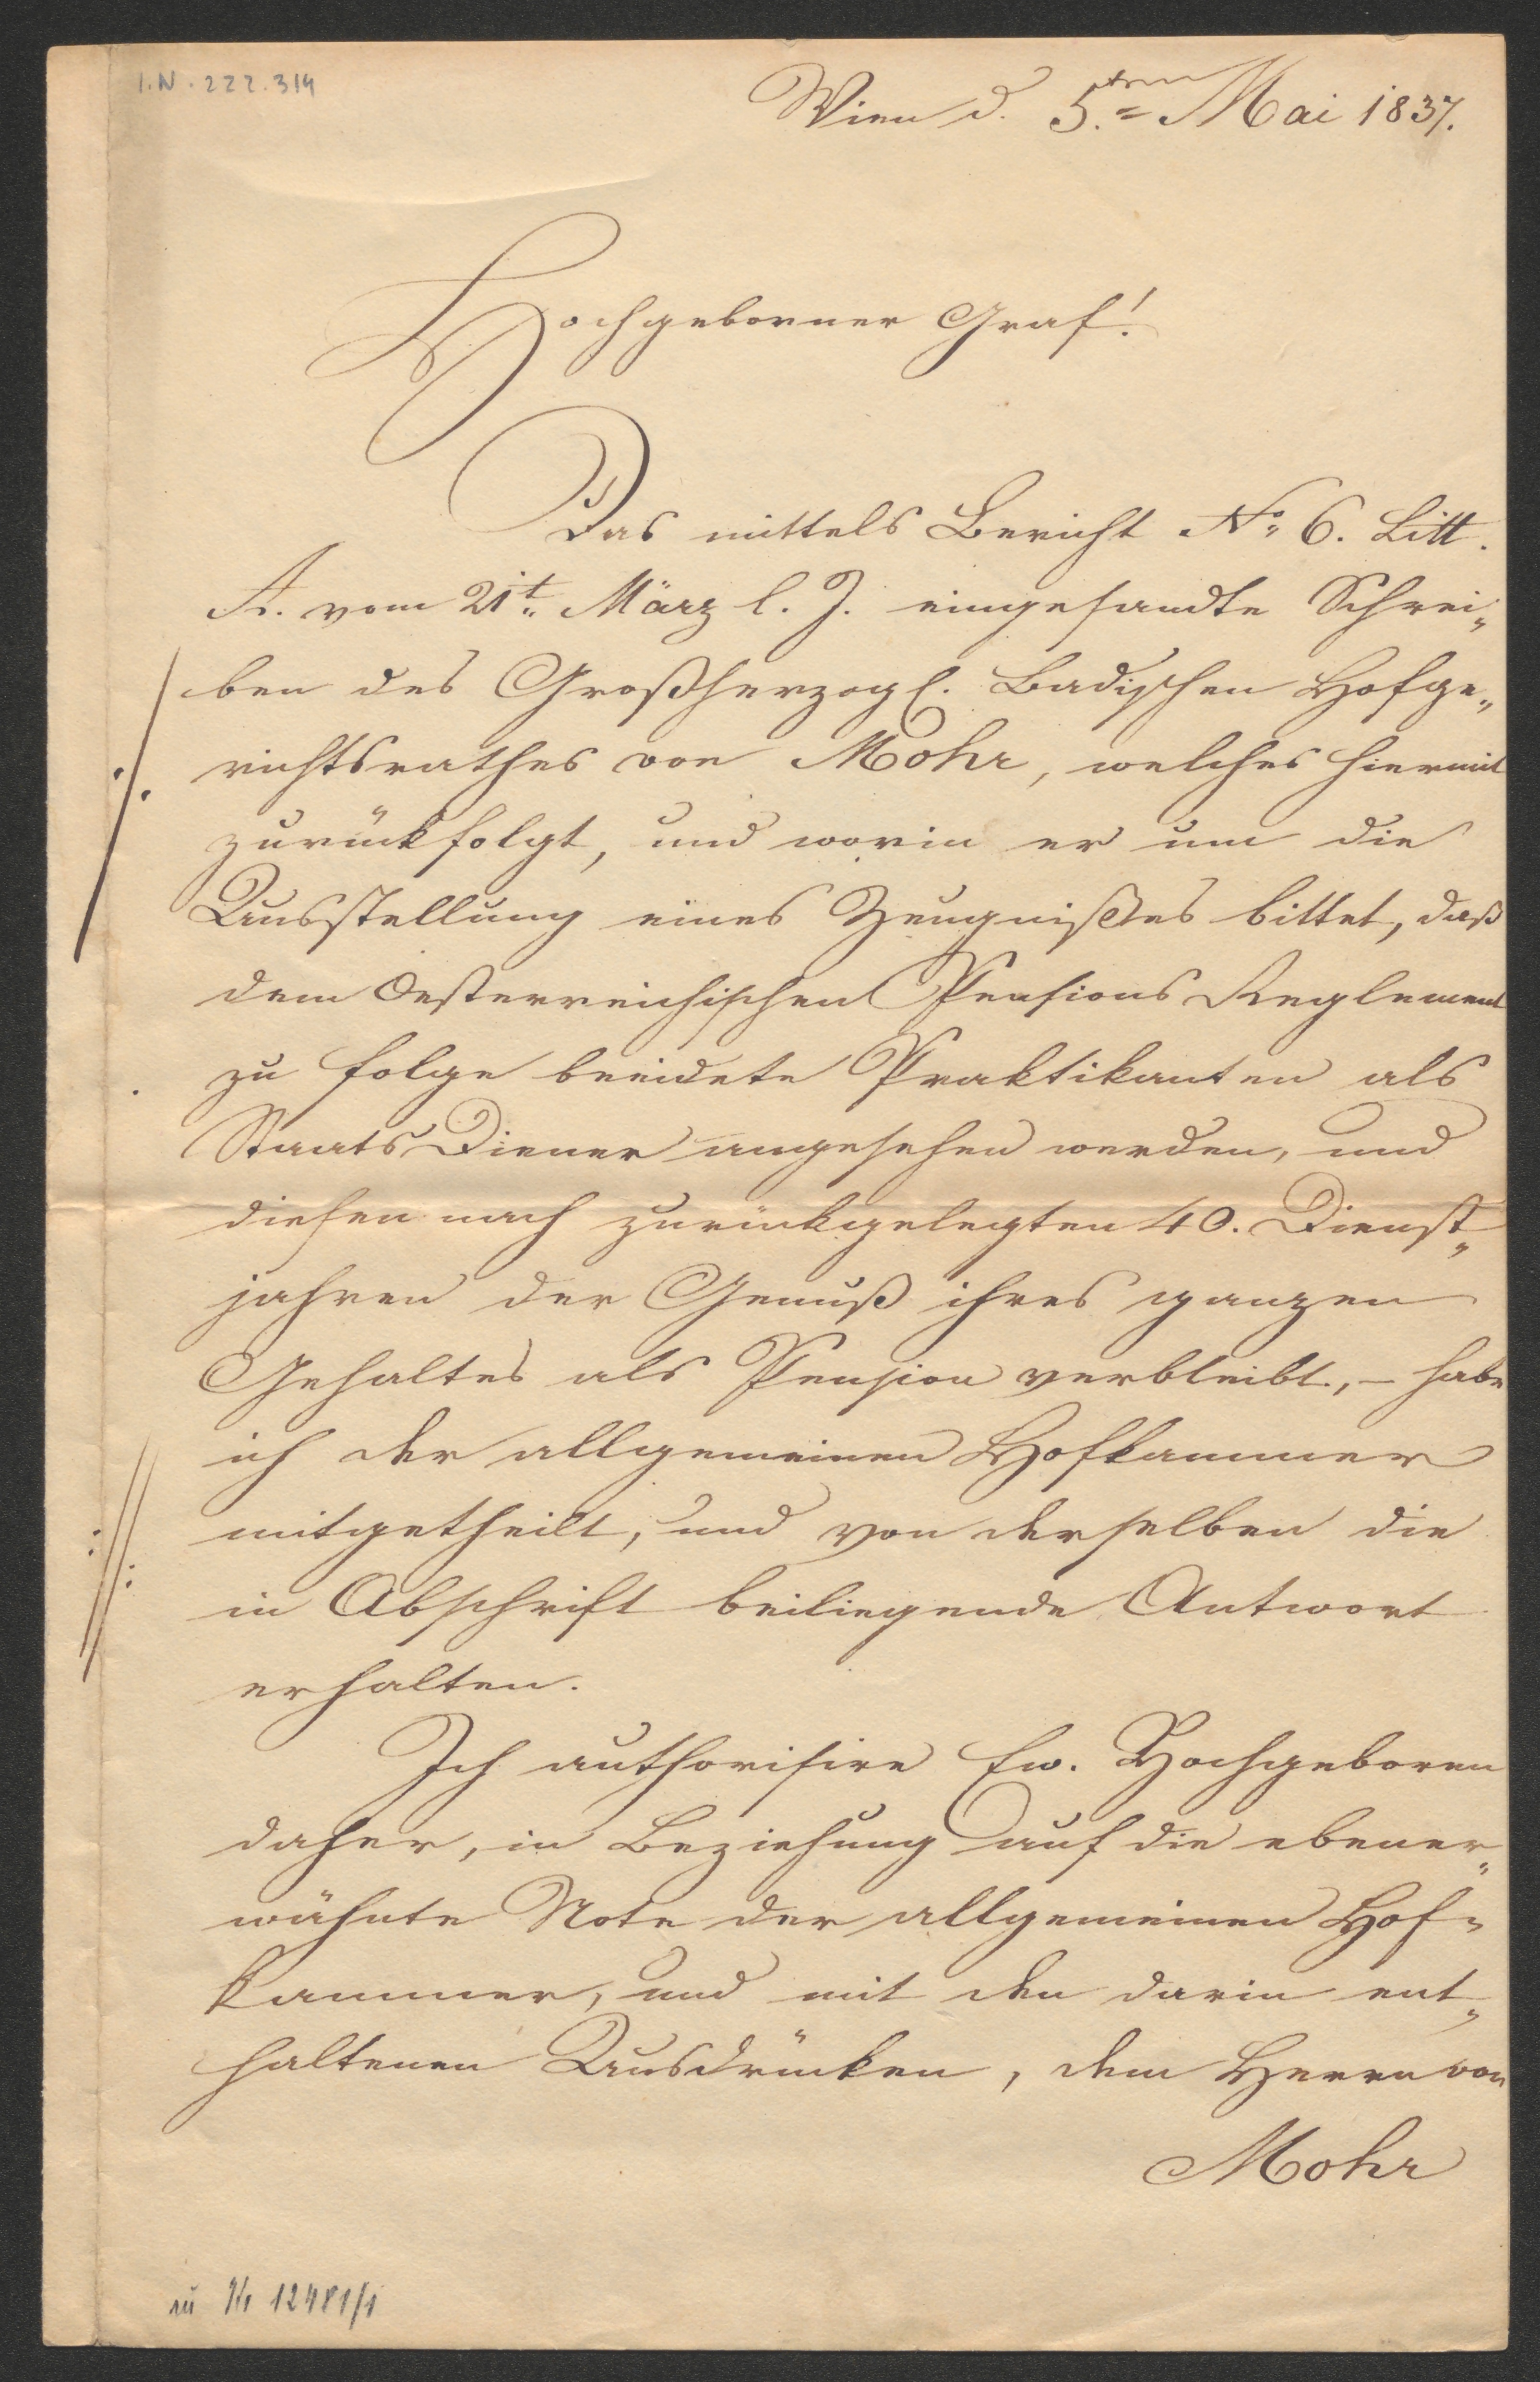 I.N. 222.314
Wien d. 5.ten Mai 1837.
Hochgeborner Graf!
Das mittels Bericht No 6. Litt.
A. vom 21t. März l. J. eingesandte Schrei„
ben des Großherzogl. Badischen Hofge„
richtsrathes von Mohr, welches hiermit
zurückfolgt, und worin er um die
Ausstellung eines Zeugnißes bittet, daß
dem Oesterreichischen Pensions Reglement
zu folge beeidete Praktikanten als
Staats Diener angesehen werden, und
diesen nach zurückgelegten 40. Dienst„
jahren der Genuß ihres ganzen
Gehaltes als Pension verbleibt, – habe
ich der allgemeinen Hofkammer
mitgetheilt, und von derselben die
in Abschrift beiliegende Antwort
erhalten.
Ich authorisire Ew. Hochgeboren
daher, in Beziehung auf die ebener„
wähnte Note der allgemeinen Hof=
kammer, und mit den darin ent„
haltenen Ausdrücken, dem Herrn von
Mohr
zu Nr 12481/1